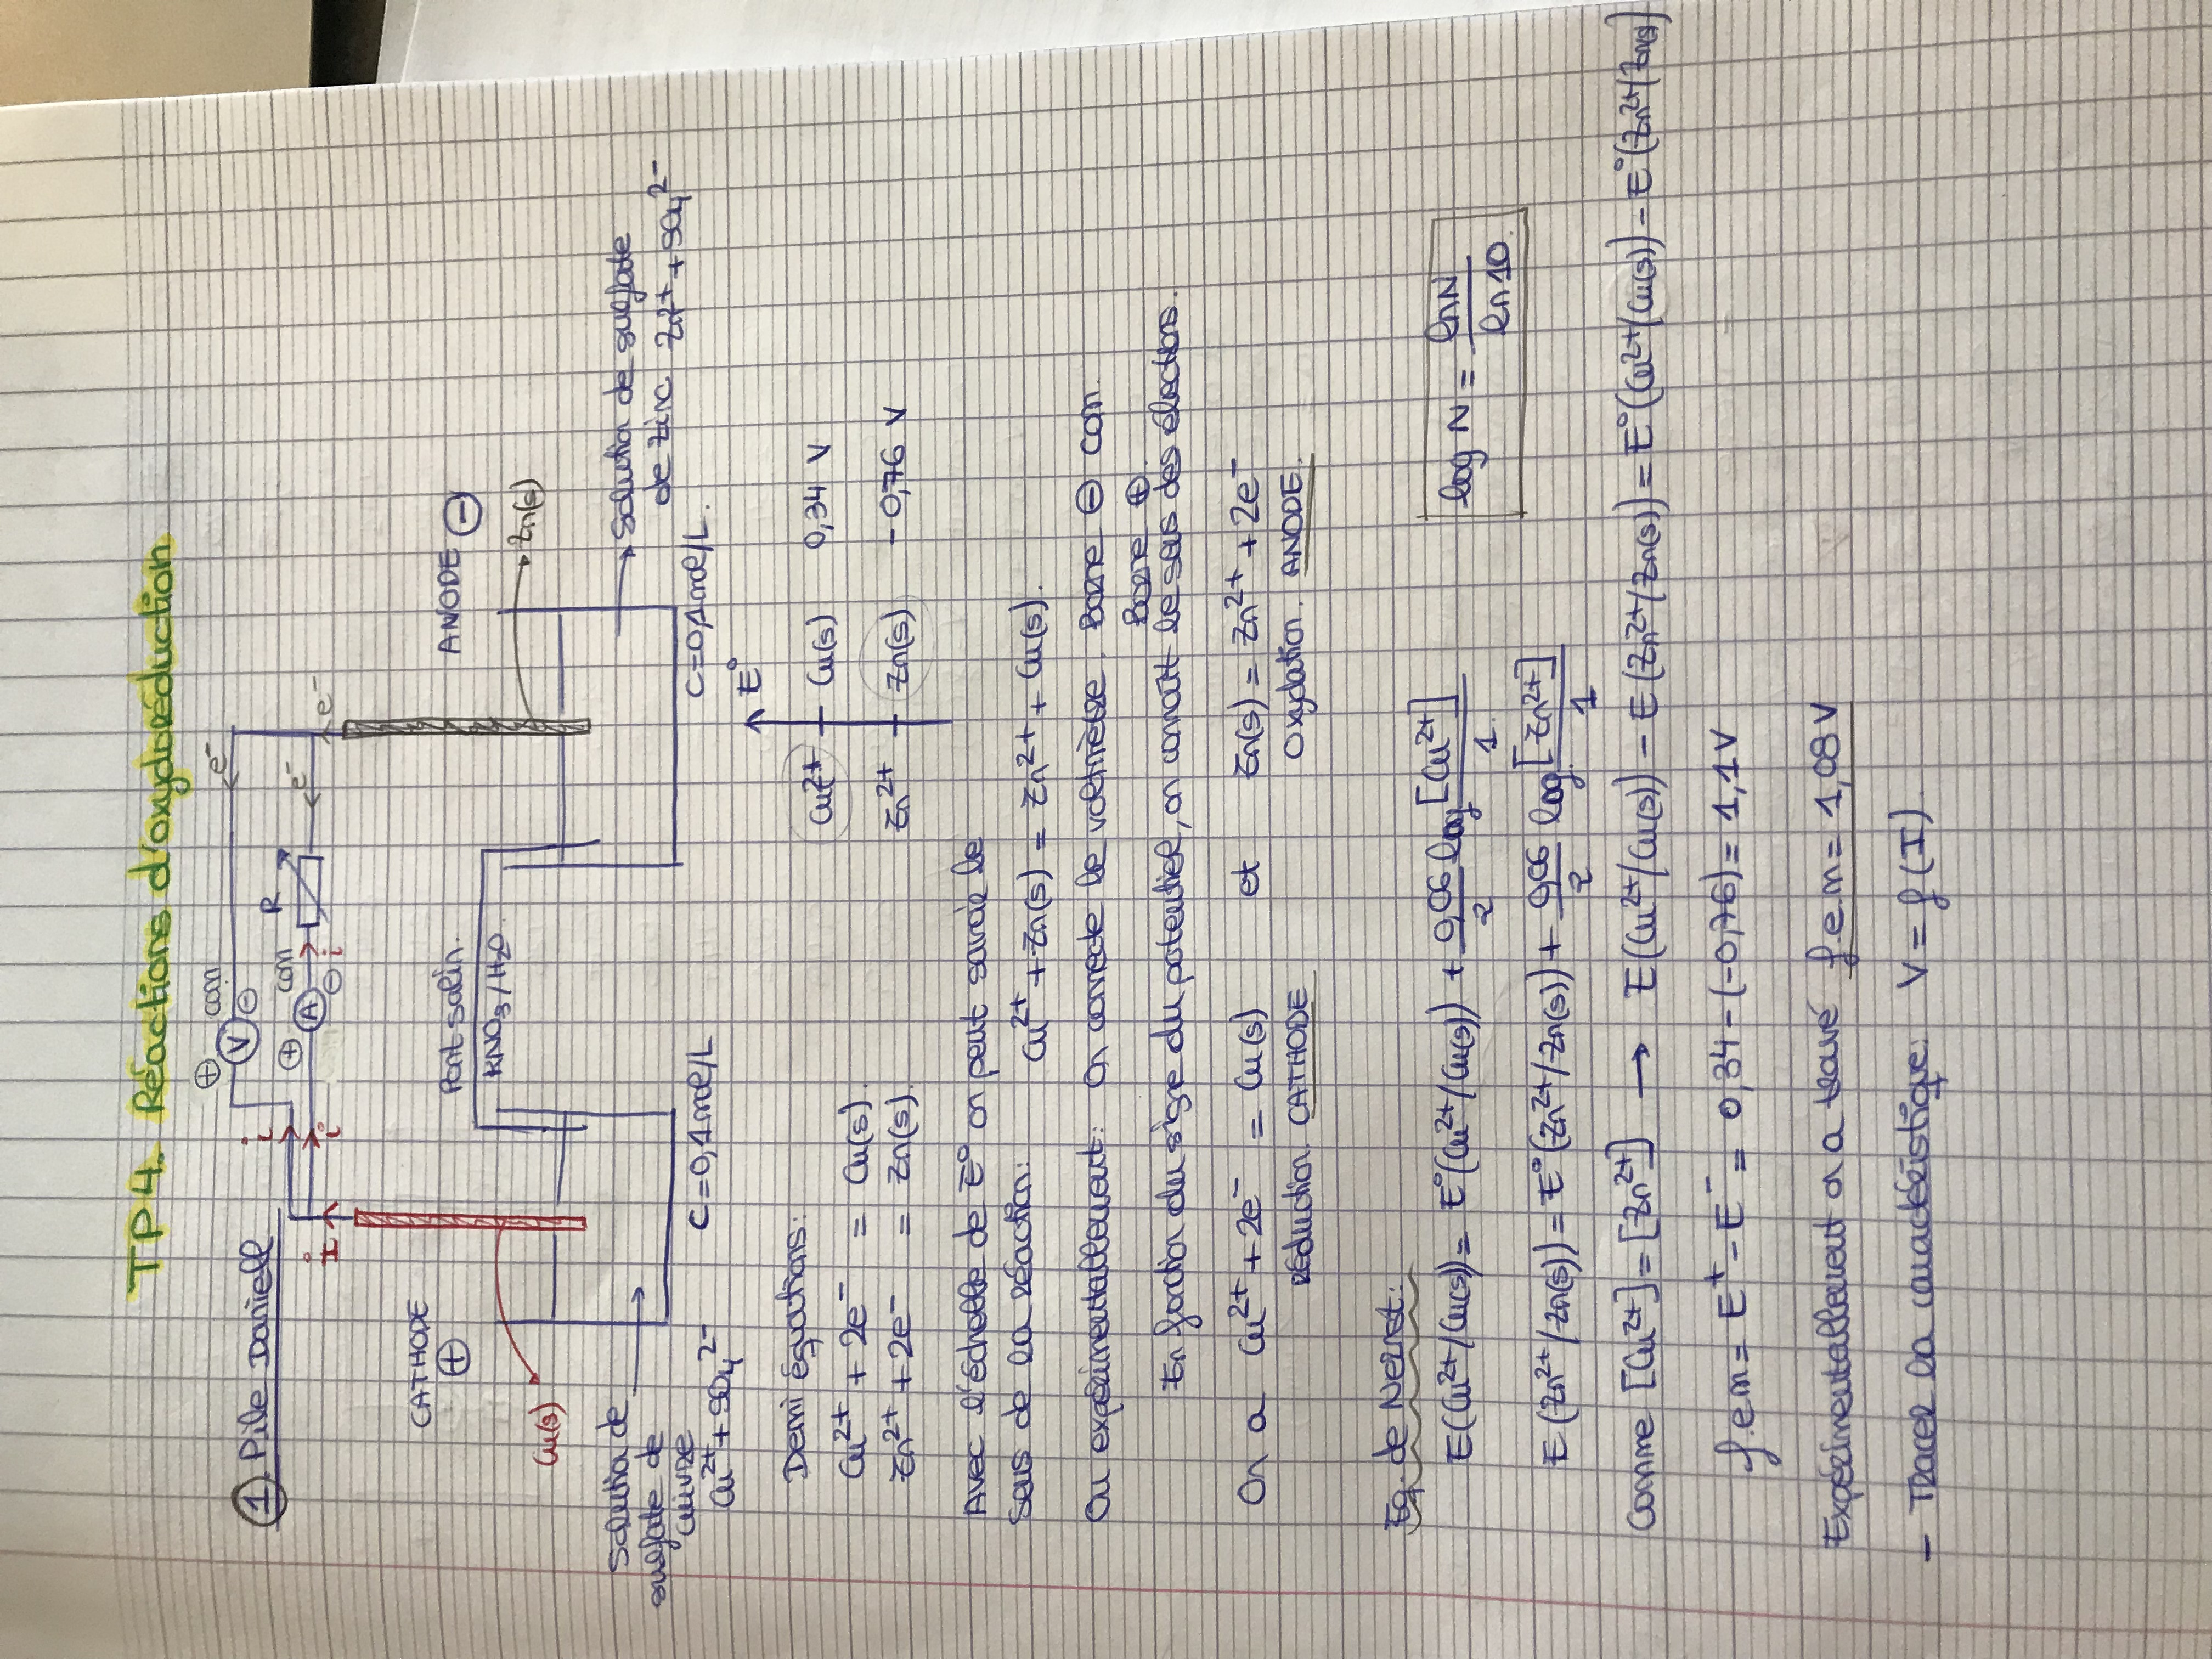 TP4. Réactions d'oxydoréduction
1. Pile Daniell
+ V com -
e-
i
+ A com -
i
i
i
R
e-
e-
CATHODE
+
ANODE -
Pont salin.
KNO3/H2O
Cu(s)
Zn(s)
Solution de
sulfate de
cuivre
Cu²⁺ + SO₄²⁻
C=0,1mol/L
Solution de sulfate
de zinc Zn²⁺ + SO₄²⁻
C=0,1mol/L.
Demi équations:
Cu²⁺ + 2e⁻ = Cu(s).
Zn²⁺ + 2e⁻ = Zn(s).
E°
Cu²⁺ Cu(s) 0,34 V
Zn²⁺ Zn(s) -0,76 V
Avec l'échelle de E° on peut savoir le
sens de la réaction: Cu²⁺ + Zn(s) = Zn²⁺ + Cu(s).
Ou expérimentallement: On connecte le voltmètre. Borne ⊖ com.
Borne ⊕.
En fonction du signe du potentiel, on connaît le sens des électrons.
On a Cu²⁺ + 2e⁻ = Cu(s) et Zn(s) = Zn²⁺ + 2e⁻
réduction. CATHODE Oxydation. ANODE.
Eq. de Nernst:
E(Cu²⁺/Cu(s)) = E°(Cu²⁺/Cu(s)) + 0,06/2 log [Cu²⁺]/1.
log N = ln N / ln 10.
E(Zn²⁺/Zn(s)) = E°(Zn²⁺/Zn(s)) + 0,06/2 log. [Zn²⁺]/1
Comme [Cu²⁺] = [Zn²⁺] → E(Cu²⁺/Cu(s)) - E(Zn²⁺/Zn(s)) = E°(Cu²⁺/Cu(s)) - E°(Zn²⁺/Zn(s))
f.e.m = E⁺ - E⁻ = 0,34 - (-0,76) = 1,1V
Expérimentallement on a trouvé f.e.m = 1,08 V
- Tracer la caractéristique: V = f(I).